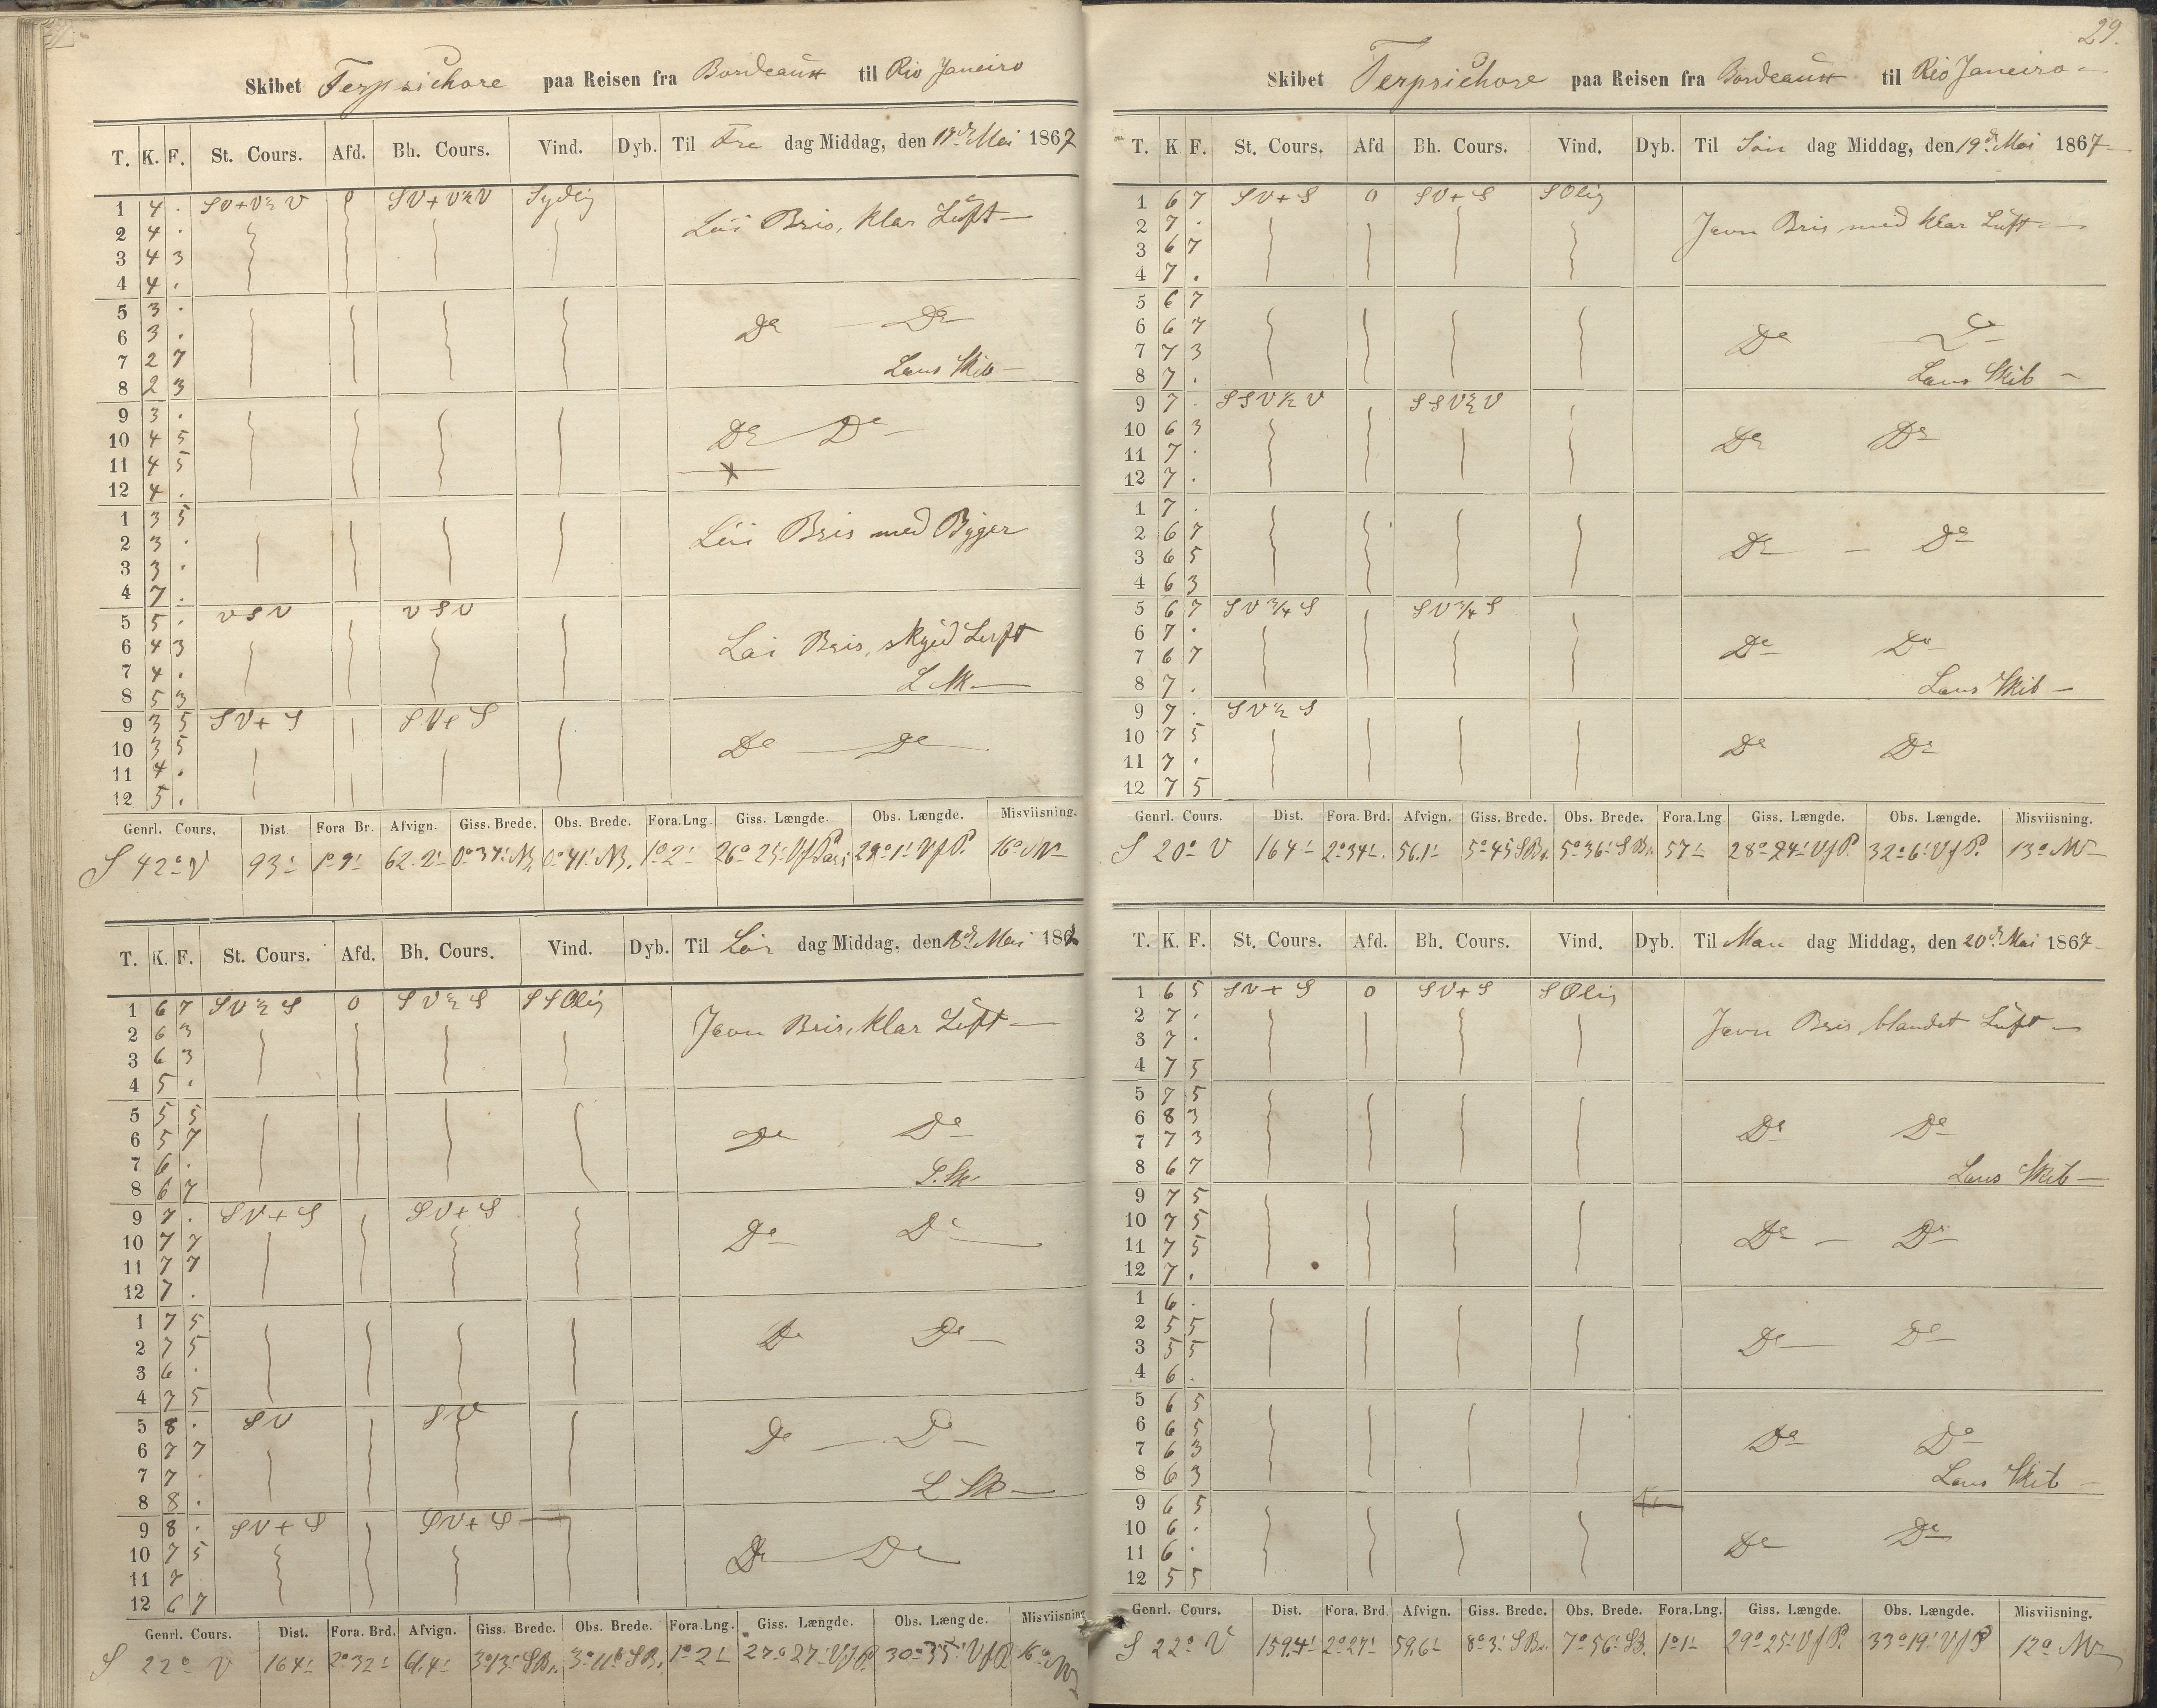 Skibet Terpsichore paa Reisen fra Bordeaux til Rio Janeiro
T. K. F. St. Cours. Afd. Bh. Cours. Vind. Dyb. Til Fre dag Middag, den 17de Mai 1867
1 4 . SV+V½V 0 SV+V½V Sydlig
Löi Bris, klar Luft
2 4 .
3 4 3
4 4 .
5 3 .
6 3 . Do Do
7 2 7 Lens Skib
8 2 3
9 3 .
10 4 5 Do Do
11 4 5
12 4 .
1 3 5
2 3 . Löi Bris med Byger
3 3 .
4 7 .
5 5 . VSV VSV
6 4 3 Löi Bris, skyed Luft
7 4 .
8 5 3 L Sk
9 3 5 SV+S SV+S
10 3 5 Do Do
11 4 .
12 5 .
Genrl. Cours. Dist Fora Br. Afvign. Giss. Brede. Obs. Brede. Fora.Lng. Giss. Længde. Obs. Længde. Misviisning.
S 42° V 93' 1°9' 62.2' 0°34' NB. 0°41' NB. 1°2' 26°25' VfParis 29°1' VfP. 16° NV
T. K. F. St. Cours. Afd. Bh. Cours. Vind. Dyb. Til Lör dag Middag, den 18de Mai 1867
1 6 7 SV½S 0 SV½S SSOlig
2 6 3 Jevn Bris, klar Luft
3 6 3
4 5 .
5 5 5
6 5 7 Do Do
7 6 .
8 6 7 L.Sk.
9 7 . SV+S SV+S
10 7 7 Do Do
11 7 7
12 7 .
1 7 5
2 7 5 Do Do
3 6 .
4 7 5
5 8 . SV SV
6 7 7 Do Do
7 7 .
8 8 . L Sk
9 8 . SV+S SV+S
10 7 5 Do Do
11 7
12 6 7
Genrl. Cours. Dist. Fora. Brd. Afvign. Giss. Brede. Obs. Brede. Fora.Lng. Giss. Længde. Obs. Længde. Misviisning
S 22° V 164' 2°32' 61.4' 3°13' SBr. SBr. 1°2' 27°27' VfP. 30°35' VfP 16° NV
29.
Skibet Terpsichore paa Reisen fra Bordeaux til Rio Janeiro
T. K F. St. Cours. Afd Bh. Cours. Vind. Dyb. Til Sön dag Middag, den 19de Mai 1867
1 6 7 SV+S 0 SV+S SOlig
2 7 . Jevn Bris med klar Luft
3 6 7
4 7 .
5 6 7
6 6 7 Do Do
7 7 3
8 7 . Lens Skib
9 7 . SSV½V SSV½V
10 6 3 Do Do
11 7 .
12 7 .
1 7 .
2 6 7 Do Do
3 6 5
4 6 3
5 6 7 SV¾S SV¾S
6 7 . Do Do
7 6 7
8 7 . Lens Skib
9 7 . SV½S
10 7 5 Do Do
11 7 .
12 7 5
Genrl. Cours. Dist. Fora. Brd. Afvign. Giss. Brede. Obs. Brede. Fora.Lng Giss. Længde. Obs. Længde. Misviisning.
S 20° V 164' 2°34' 56.1' 5°45' SBr. 5°36' SBr. 57' 28°24' VfP. 32°6' VfP. 13° NV
T. K. F. St. Cours. Afd. Bh. Cours. Vind. Dyb. Til Man dag Middag, den 20de Mai 1867
1 6 5 SV+S 0 SV+S SOlig
2 7 . Jevn Bris, blandet Luft
3 7 .
4 7 5
5 7 5
6 8 3 Do Do
7 7 3
8 6 7 Lens Skib
9 7 5
10 7 5 Do Do
11 7 5
12 7 .
1 6 .
2 5 5 Do Do
3 5 5
4 6 .
5 6 5
6 6 5 Do Do
7 6 3
8 6 3 Lens Skib
9 6 5
10 6 . Do Do
11 6 .
12 5 5
Genrl. Cours. Dist. Fora. Brd. Afvign. Giss. Brede. Obs. Brede. Fora.Lng. Giss. Længde. Obs. Længde. Misviisning.
S 22° V 159.4' 2°27' 59.6' 8°3' SBr. 7°56' SB. 1°1' 29°25' VfP. 33°19' VfP 12° NV